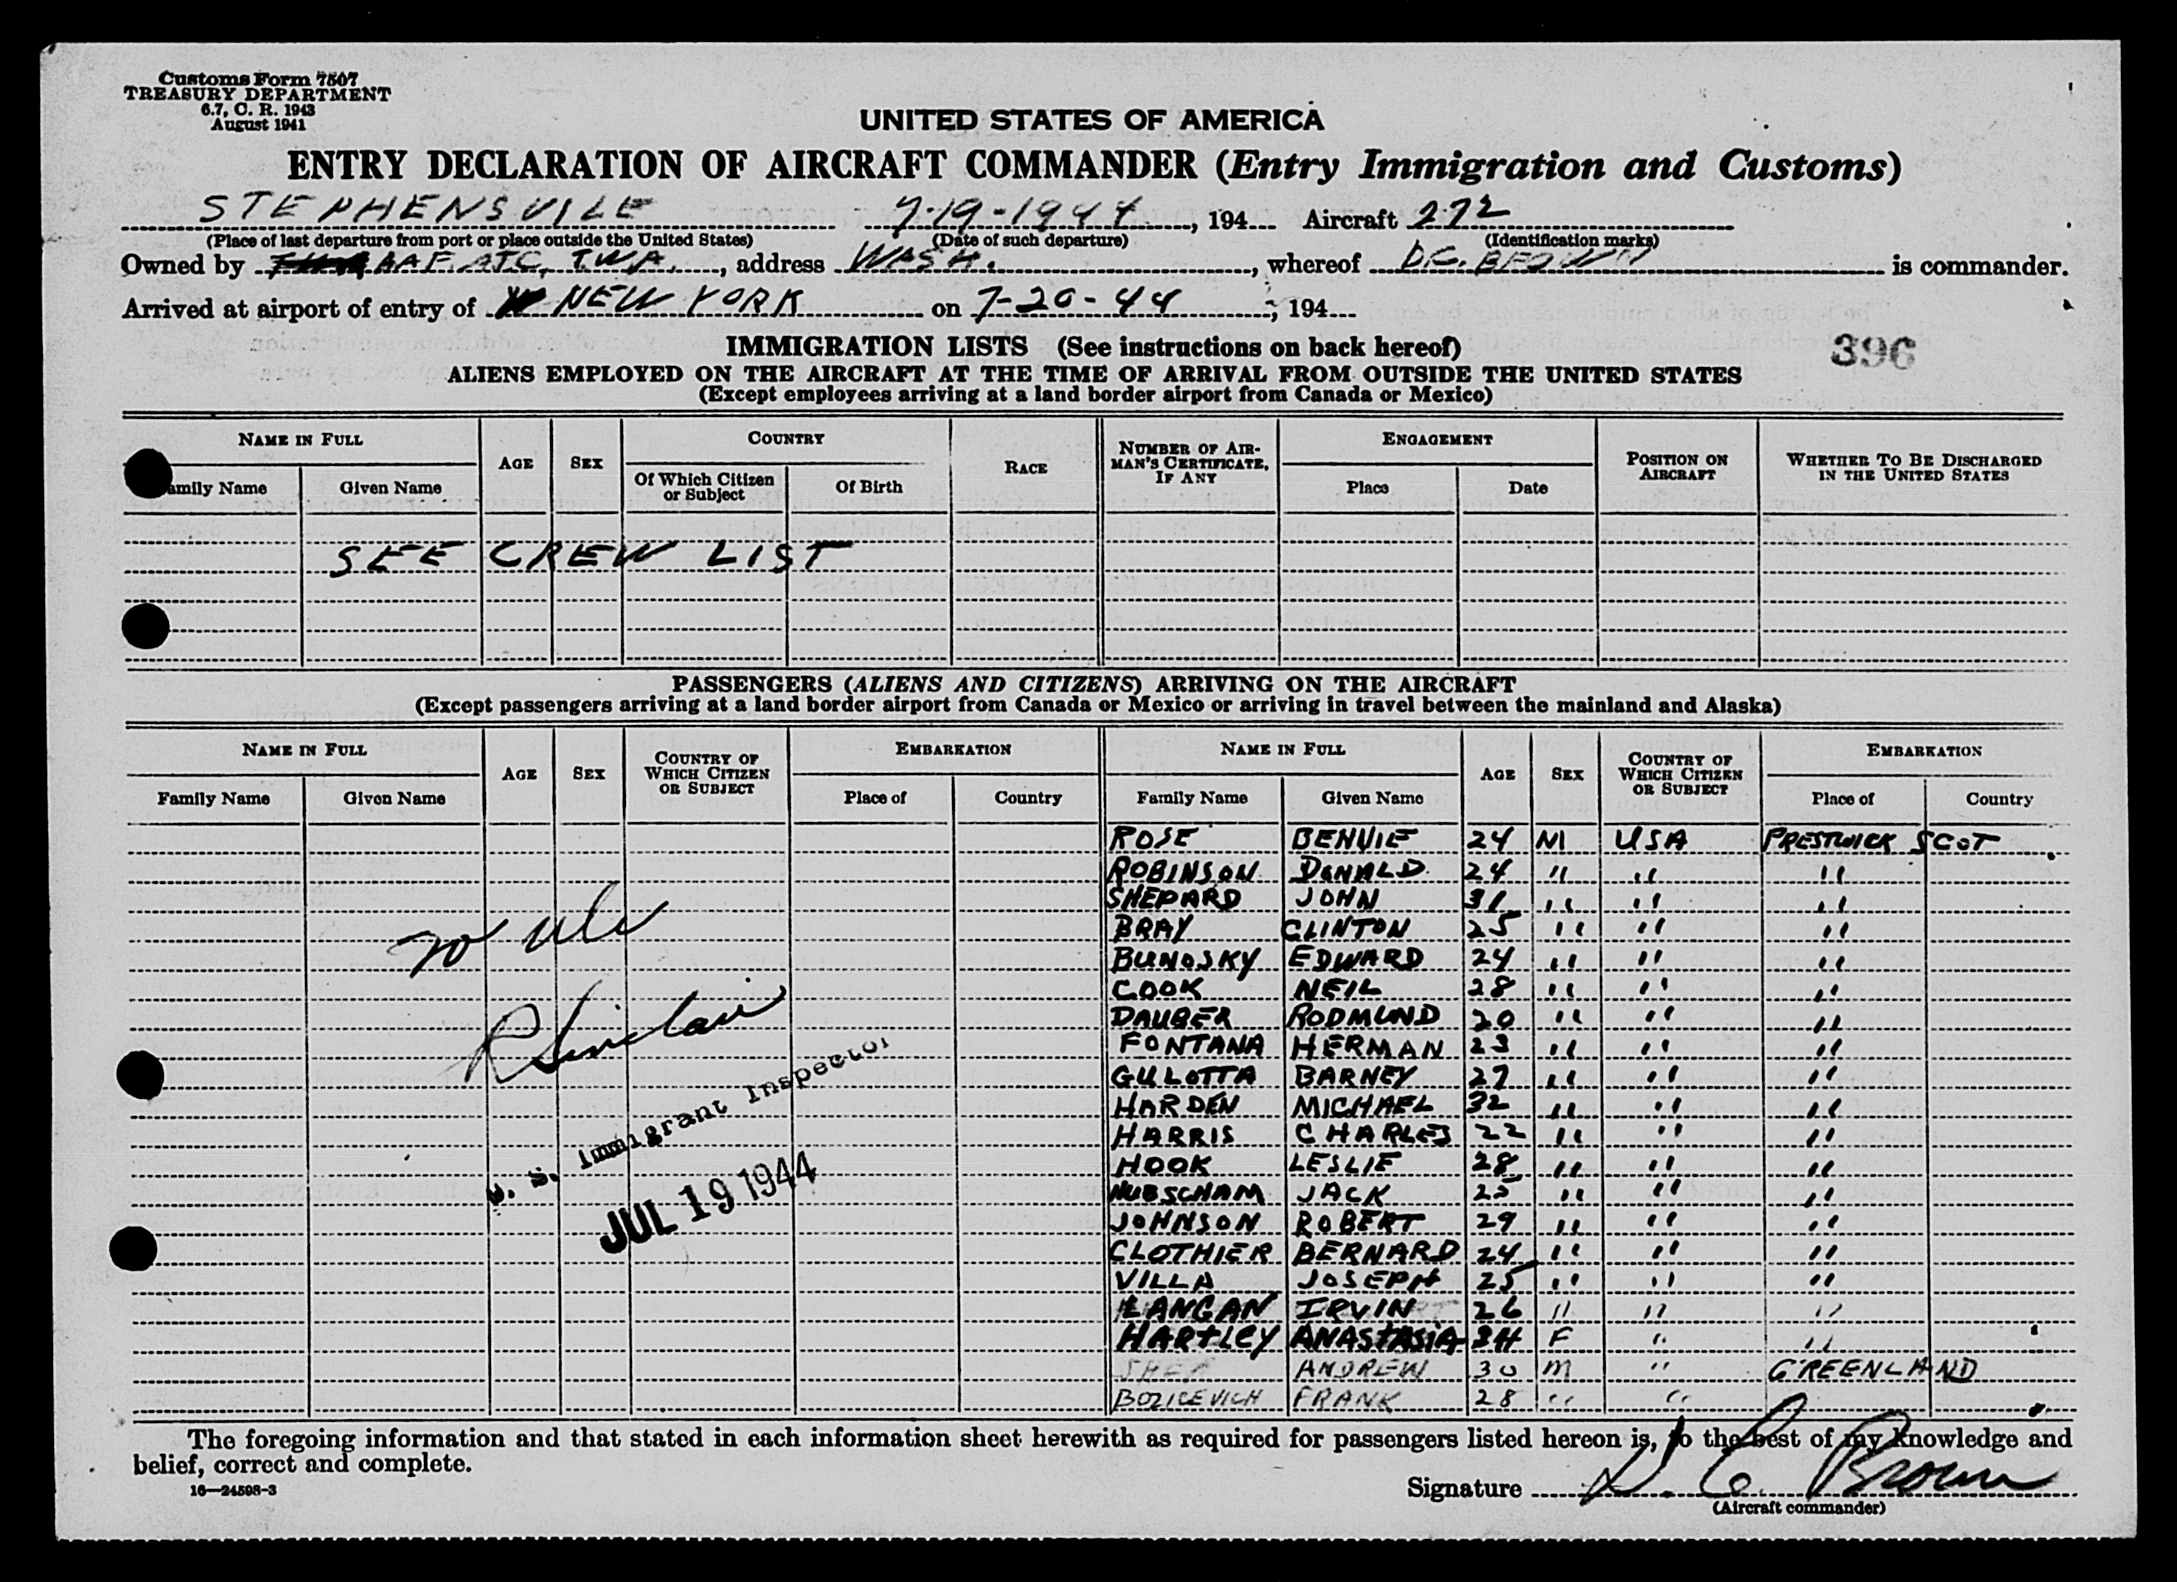 Customs Form 7507
TREASURY DEPARTMENT
6.7, C. R. 1943
August 1941
UNITED STATES OF AMERICA
ENTRY DECLARATION OF AIRCRAFT COMMANDER (Entry Immigration and Customs)
STEPHENSVILE 7-19-1944, 194 Aircraft 272
(Place of last departure from port or place outside the United States) (Date of such departure) (Identification marks)
Owned by AAF. ATC, T.W.A., address WASH., whereof D.C. BROWN is commander.
Arrived at airport of entry of NEW YORK on 7-20-44, 194
IMMIGRATION LISTS (See instructions on back hereof)
396
ALIENS EMPLOYED ON THE AIRCRAFT AT THE TIME OF ARRIVAL FROM OUTSIDE THE UNITED STATES
(Except employees arriving at a land border airport from Canada or Mexico)
NAME IN FULL AGE SEX COUNTRY RACE NUMBER OF AIRMAN'S CERTIFICATE, IF ANY ENGAGEMENT POSITION ON AIRCRAFT WHETHER TO BE DISCHARGED IN THE UNITED STATES
Family Name Given Name Of Which Citizen or Subject Of Birth Place Date
SEE CREW LIST
PASSENGERS (ALIENS AND CITIZENS) ARRIVING ON THE AIRCRAFT
(Except passengers arriving at a land border airport from Canada or Mexico or arriving in travel between the mainland and Alaska)
NAME IN FULL AGE SEX COUNTRY OF WHICH CITIZEN OR SUBJECT EMBARKATION NAME IN FULL AGE SEX COUNTRY OF WHICH CITIZEN OR SUBJECT EMBARKATION
Family Name Given Name Place of Country Family Name Given Name Place of Country
ROSE BENVIE 24 M USA PRESTWICK SCOT
ROBINSON DONALD 24 " " "
SHEPARD JOHN 31 " " "
BRAY CLINTON 25 " " "
BUNOSKY EDWARD 24 " " "
COOK NEIL 28 " " "
DAUBER RODMUND 20 " " "
FONTANA HERMAN 23 " " "
GULOTTA BARNEY 27 " " "
HARDEN MICHAEL 32 " " "
HARRIS CHARLES 22 " " "
HOOK LESLIE 28 " " "
HUBSCHAM JACK 25 " " "
JOHNSON ROBERT 29 " " "
CLOTHIER BERNARD 24 " " "
VILLA JOSEPH 25 " " "
LANGAN IRVIN 26 " " "
HARTLEY ANASTASIA 34 F " "
ANDREW 30 M " GREENLAND
BOZICEVICH FRANK 28 " "
R Sinclair
U. S. Immigrant Inspector
JUL 19 1944
The foregoing information and that stated in each information sheet herewith as required for passengers listed hereon is, to the best of my knowledge and
belief, correct and complete.
16—24598-3
Signature D. C. Brown
(Aircraft commander)